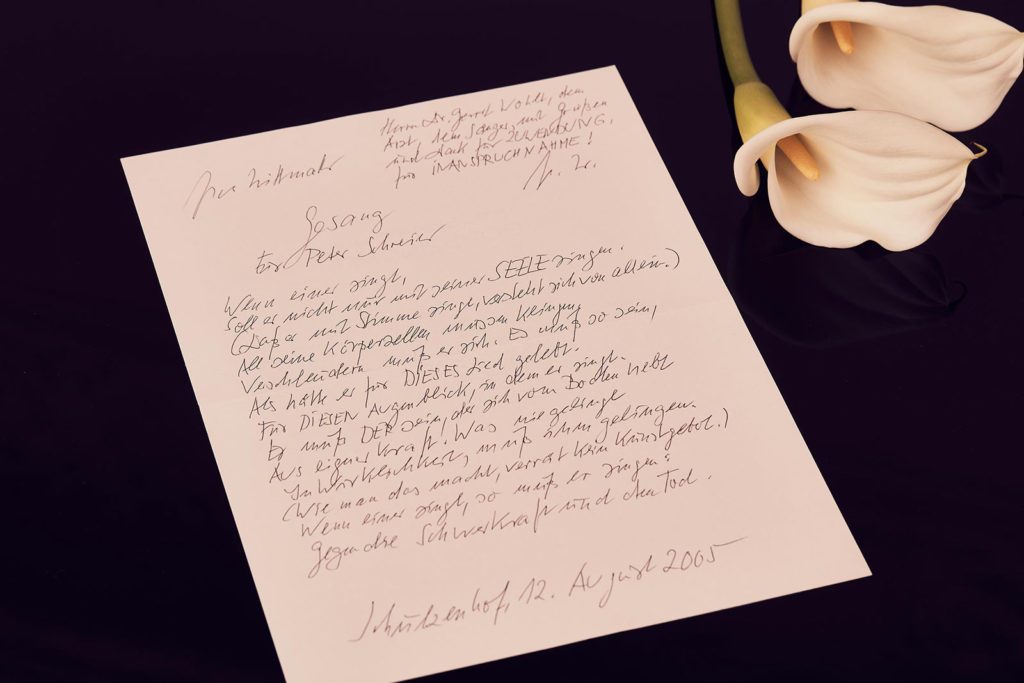 Herrn Dr. Gerrit Wohlt, dem
Arzt, dem Sänger, mit Grüßen
und Dank für ZUWENDUNG,
für INANSPRUCHNAHME!
Gesang
Für Peter Schreier
Wenn einer singt,
Soll er nicht nur mit seiner SEELE singen.
(Daß er mit Stimme singt, versteht sich von allein.)
All seine Körperzellen müssen klingen,
Verschleudern muß er sich. Es muß so sein,
Als hätte er für DIESES Lied gelebt.
Für DIESEN Augenblick, in dem er singt.
Er muß DER sein, der sich vom Boden hebt
Aus eigner Kraft. Was nie gelinge
In Wirklichkeit, muß ihm gelingen.
(Wie man das macht, verrät kein Kunstgebot.)
Wenn einer singt, so muß er singen:
Gegen die Schwerkraft und den Tod.
Schützenhof, 12. August 2005